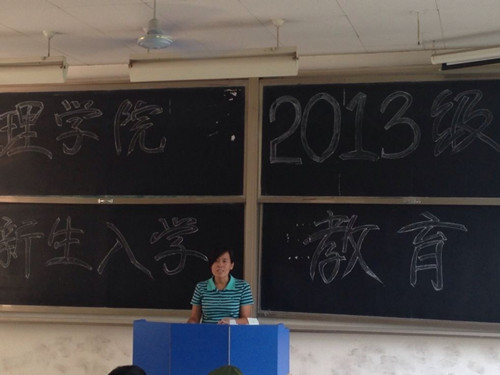 理学院 2013级
新生入学 教育